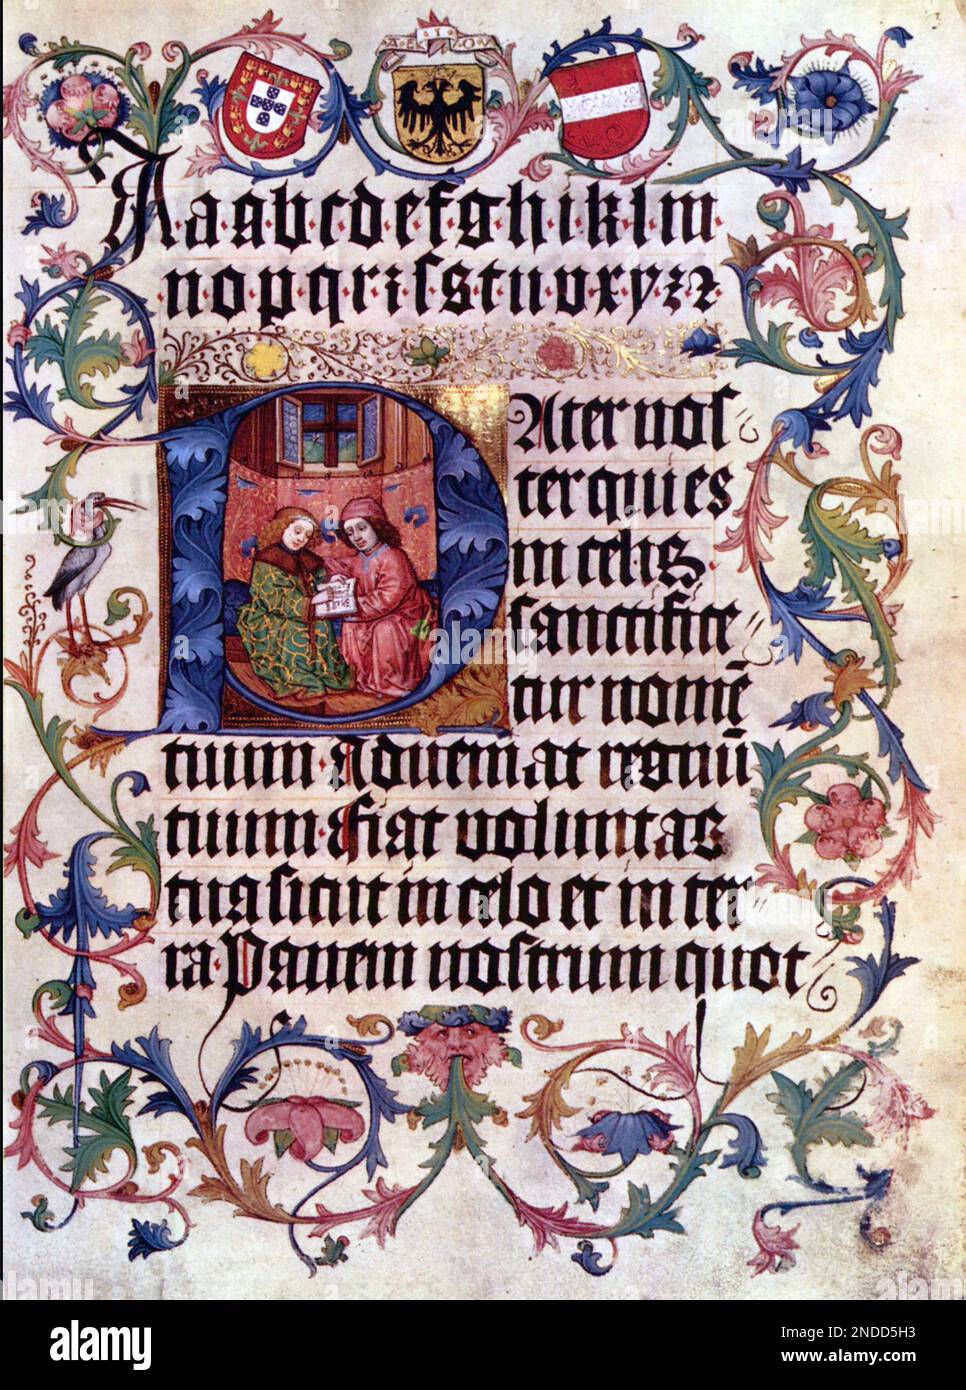 A·E·I·O·V
A a a b c d e f g h i k l m
n o p q r z ſ s t u v x y z ꝛ
Pater noſ
ter qui es
in celis.
ſanctifice
tur nomē
tuum. Adueniat regnū
tuum. Fiat voluntas
tua ſicut in celo et in ter
ra. Panem noſtrum quot
alamy
Image ID: 2NDD5H3
www.alamy.com